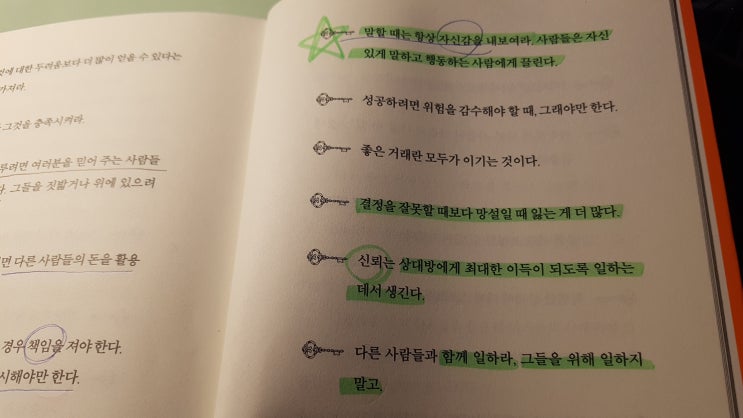 것에 대한 두려움보다 더 많이 얻을 수 있다는
가져라.
그것을 충족시켜라.
루려면 여러분을 믿어 주는 사람들
다. 그들을 짓밟거나 위에 있으려
면 다른 사람들의 돈을 활용
경우 책임을 져야 한다.
시해야만 한다.
말할 때는 항상 자신감을 내보여라. 사람들은 자신
있게 말하고 행동하는 사람에게 끌린다.
성공하려면 위험을 감수해야 할 때, 그래야만 한다.
좋은 거래란 모두가 이기는 것이다.
결정을 잘못할 때보다 망설일 때 잃는 게 더 많다.
신뢰는 상대방에게 최대한 이득이 되도록 일하는
데서 생긴다.
다른 사람들과 함께 일하라, 그들을 위해 일하지
말고.